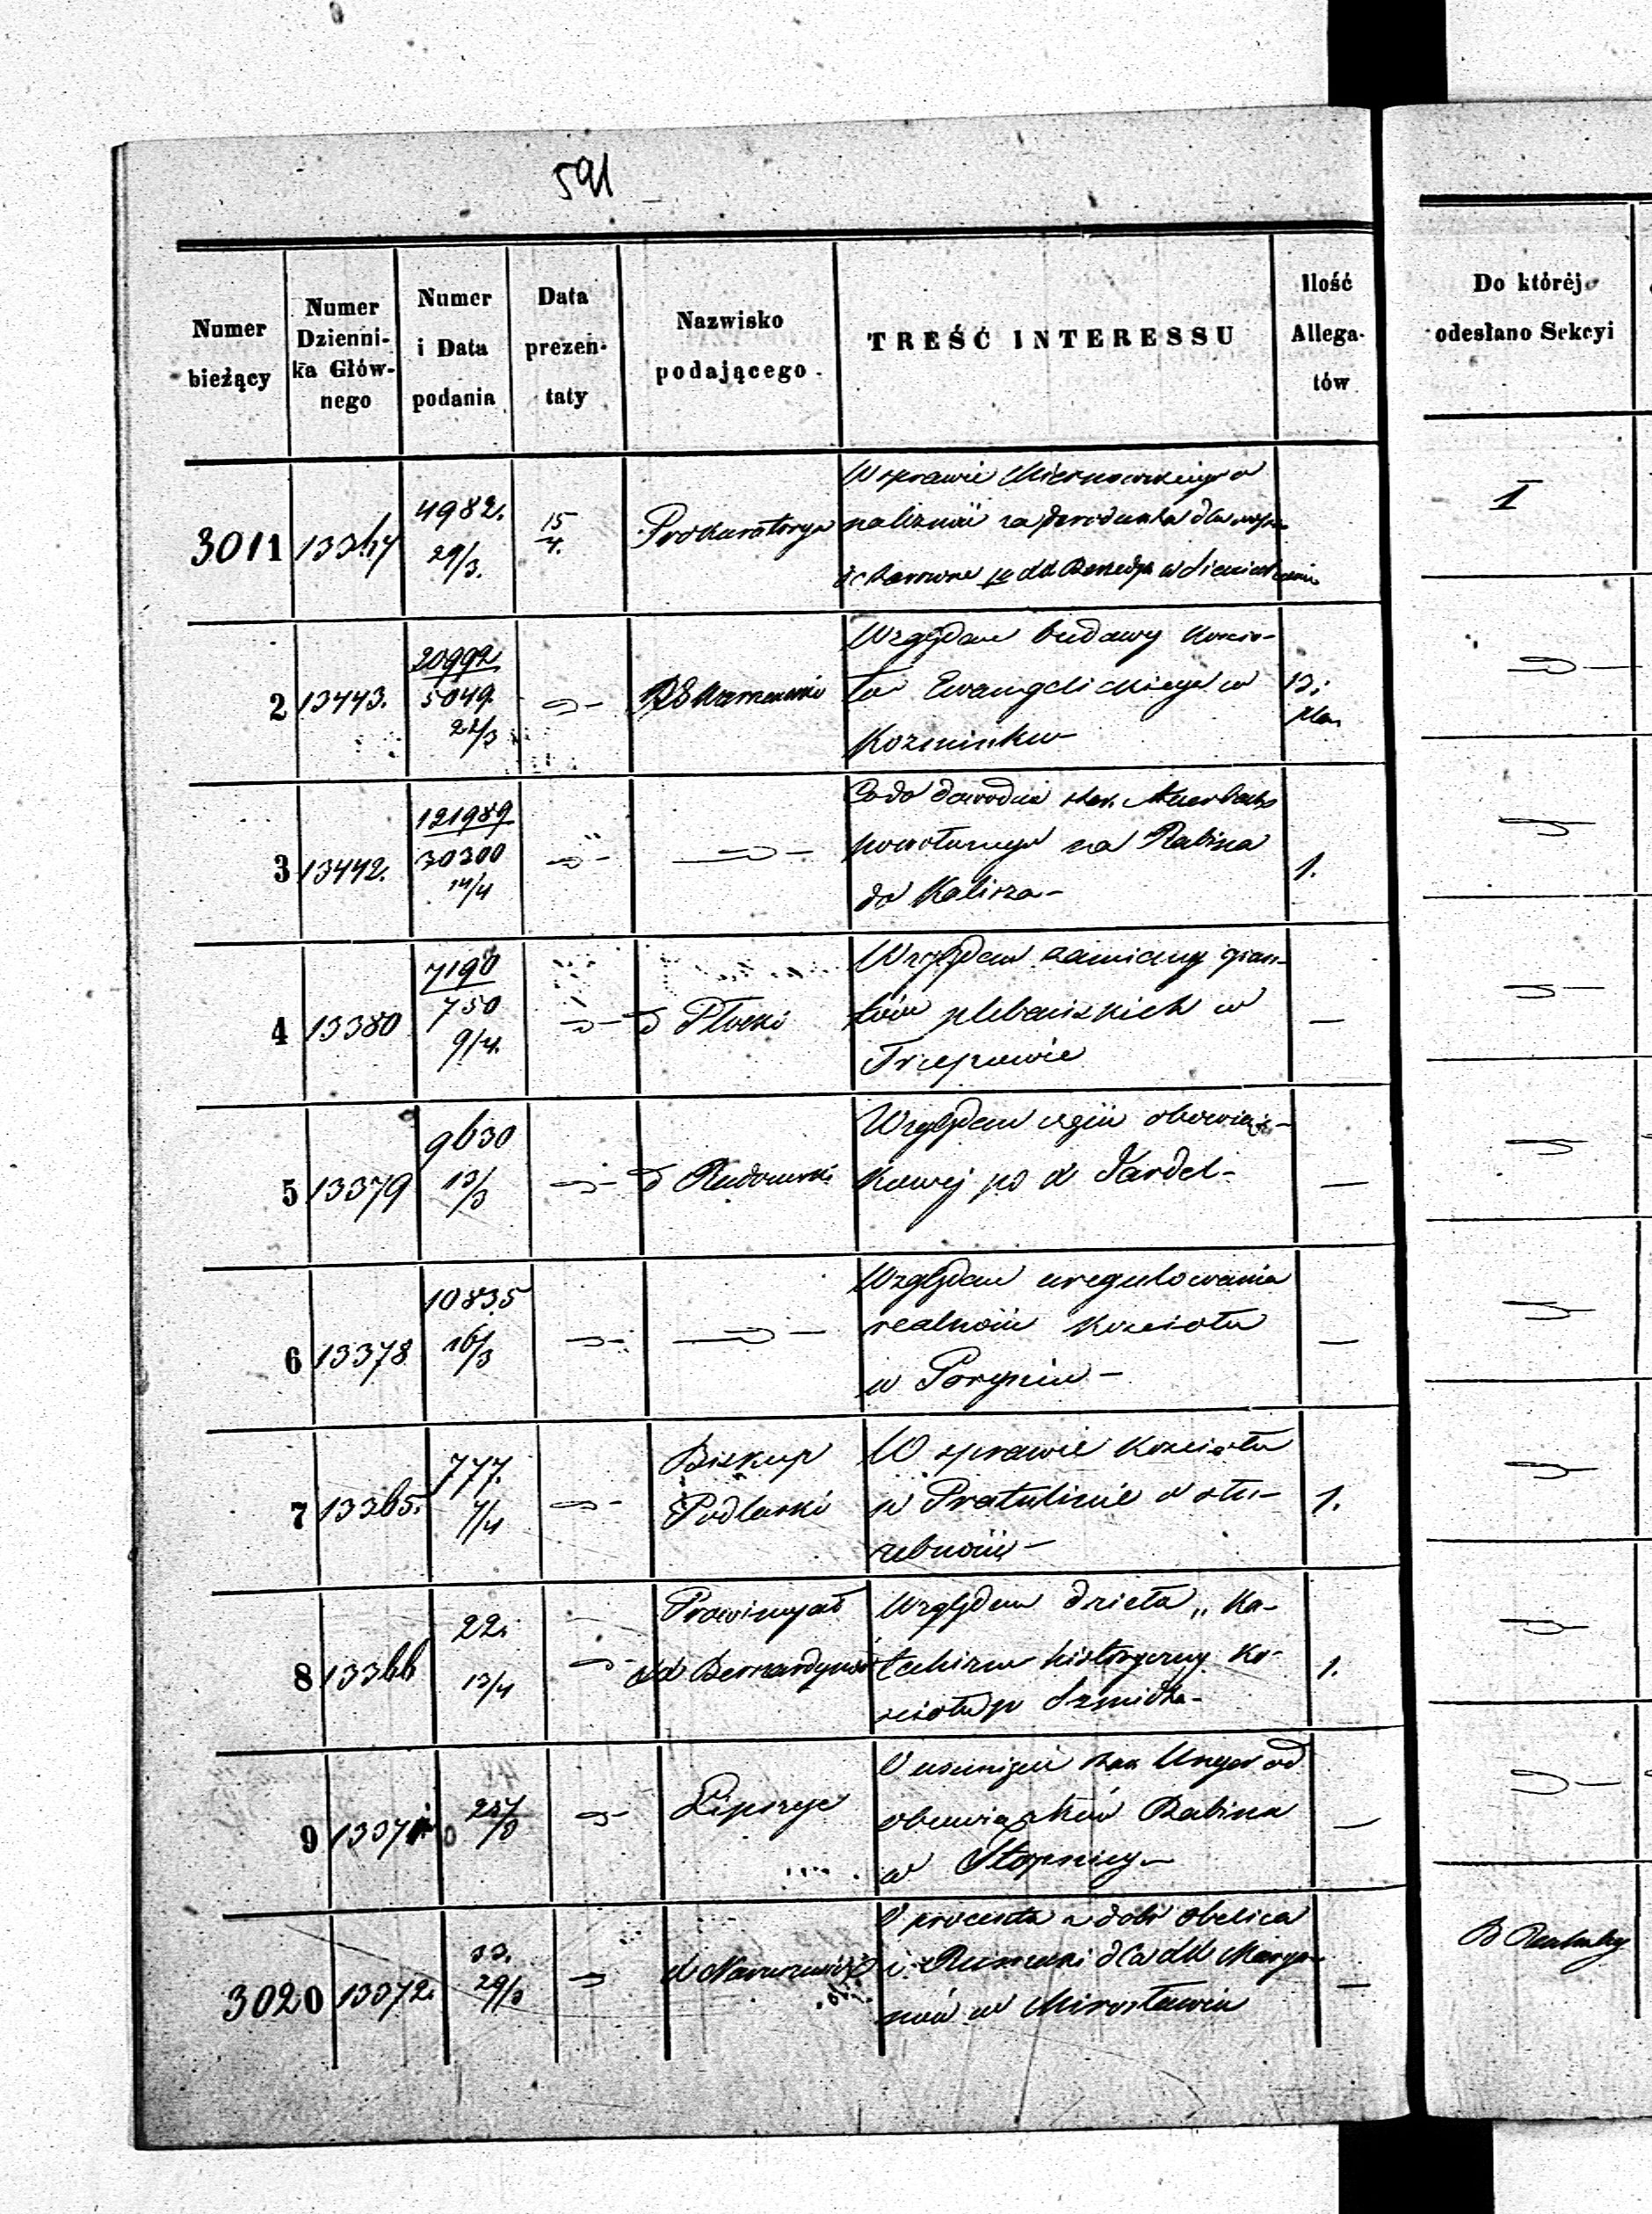 591
Numer bieżący
Numer Dzienni- ka Głów- nego
Numer i Data podania
Data prezen- taty
Nazwisko podającego
TREŚĆ INTERESSU
Ilość Allega- tów
Do któréj odesłano Sekcyi
3011
4982.
29/3.
15/4.
Prokuratorya
W sprawie
I
2
13443.
20992
5049.
22/3
Względem budowy Kościo-
ła Ewangelickiego w
Kozminku
3
13442.
121989
30300
14/4
Co do dowodów
powołanego na Rabina
do Kalisza-
1.
4
13380
7190
750
9/4.
Płocki
Względem zamiany grun-
tów plebańskich w
Trzepowie
—
5
13379
9630
13/3
Względem
kowej po
—
6
13378
10835
16/3
Względem uregulowania
realności Kościoła
w
—
7
13365.
777.
7/4
Biskup
Podlaski
W sprawie Kościoła
w Pratulinie
1.
8
13366
22.
13/4
Prowincyał
Bernardynów
Względem dzieła „Ka-
techizm historyczny Ko-
ścioła p Szmidta-
1.
9
Lipszyc
O usunięcie Ungar od
obowiązków Rabina
w Stopnicy-
—
3020
13372.
33.
29/3
O procenta z dóbr
i dla
w Mirosławiu
—